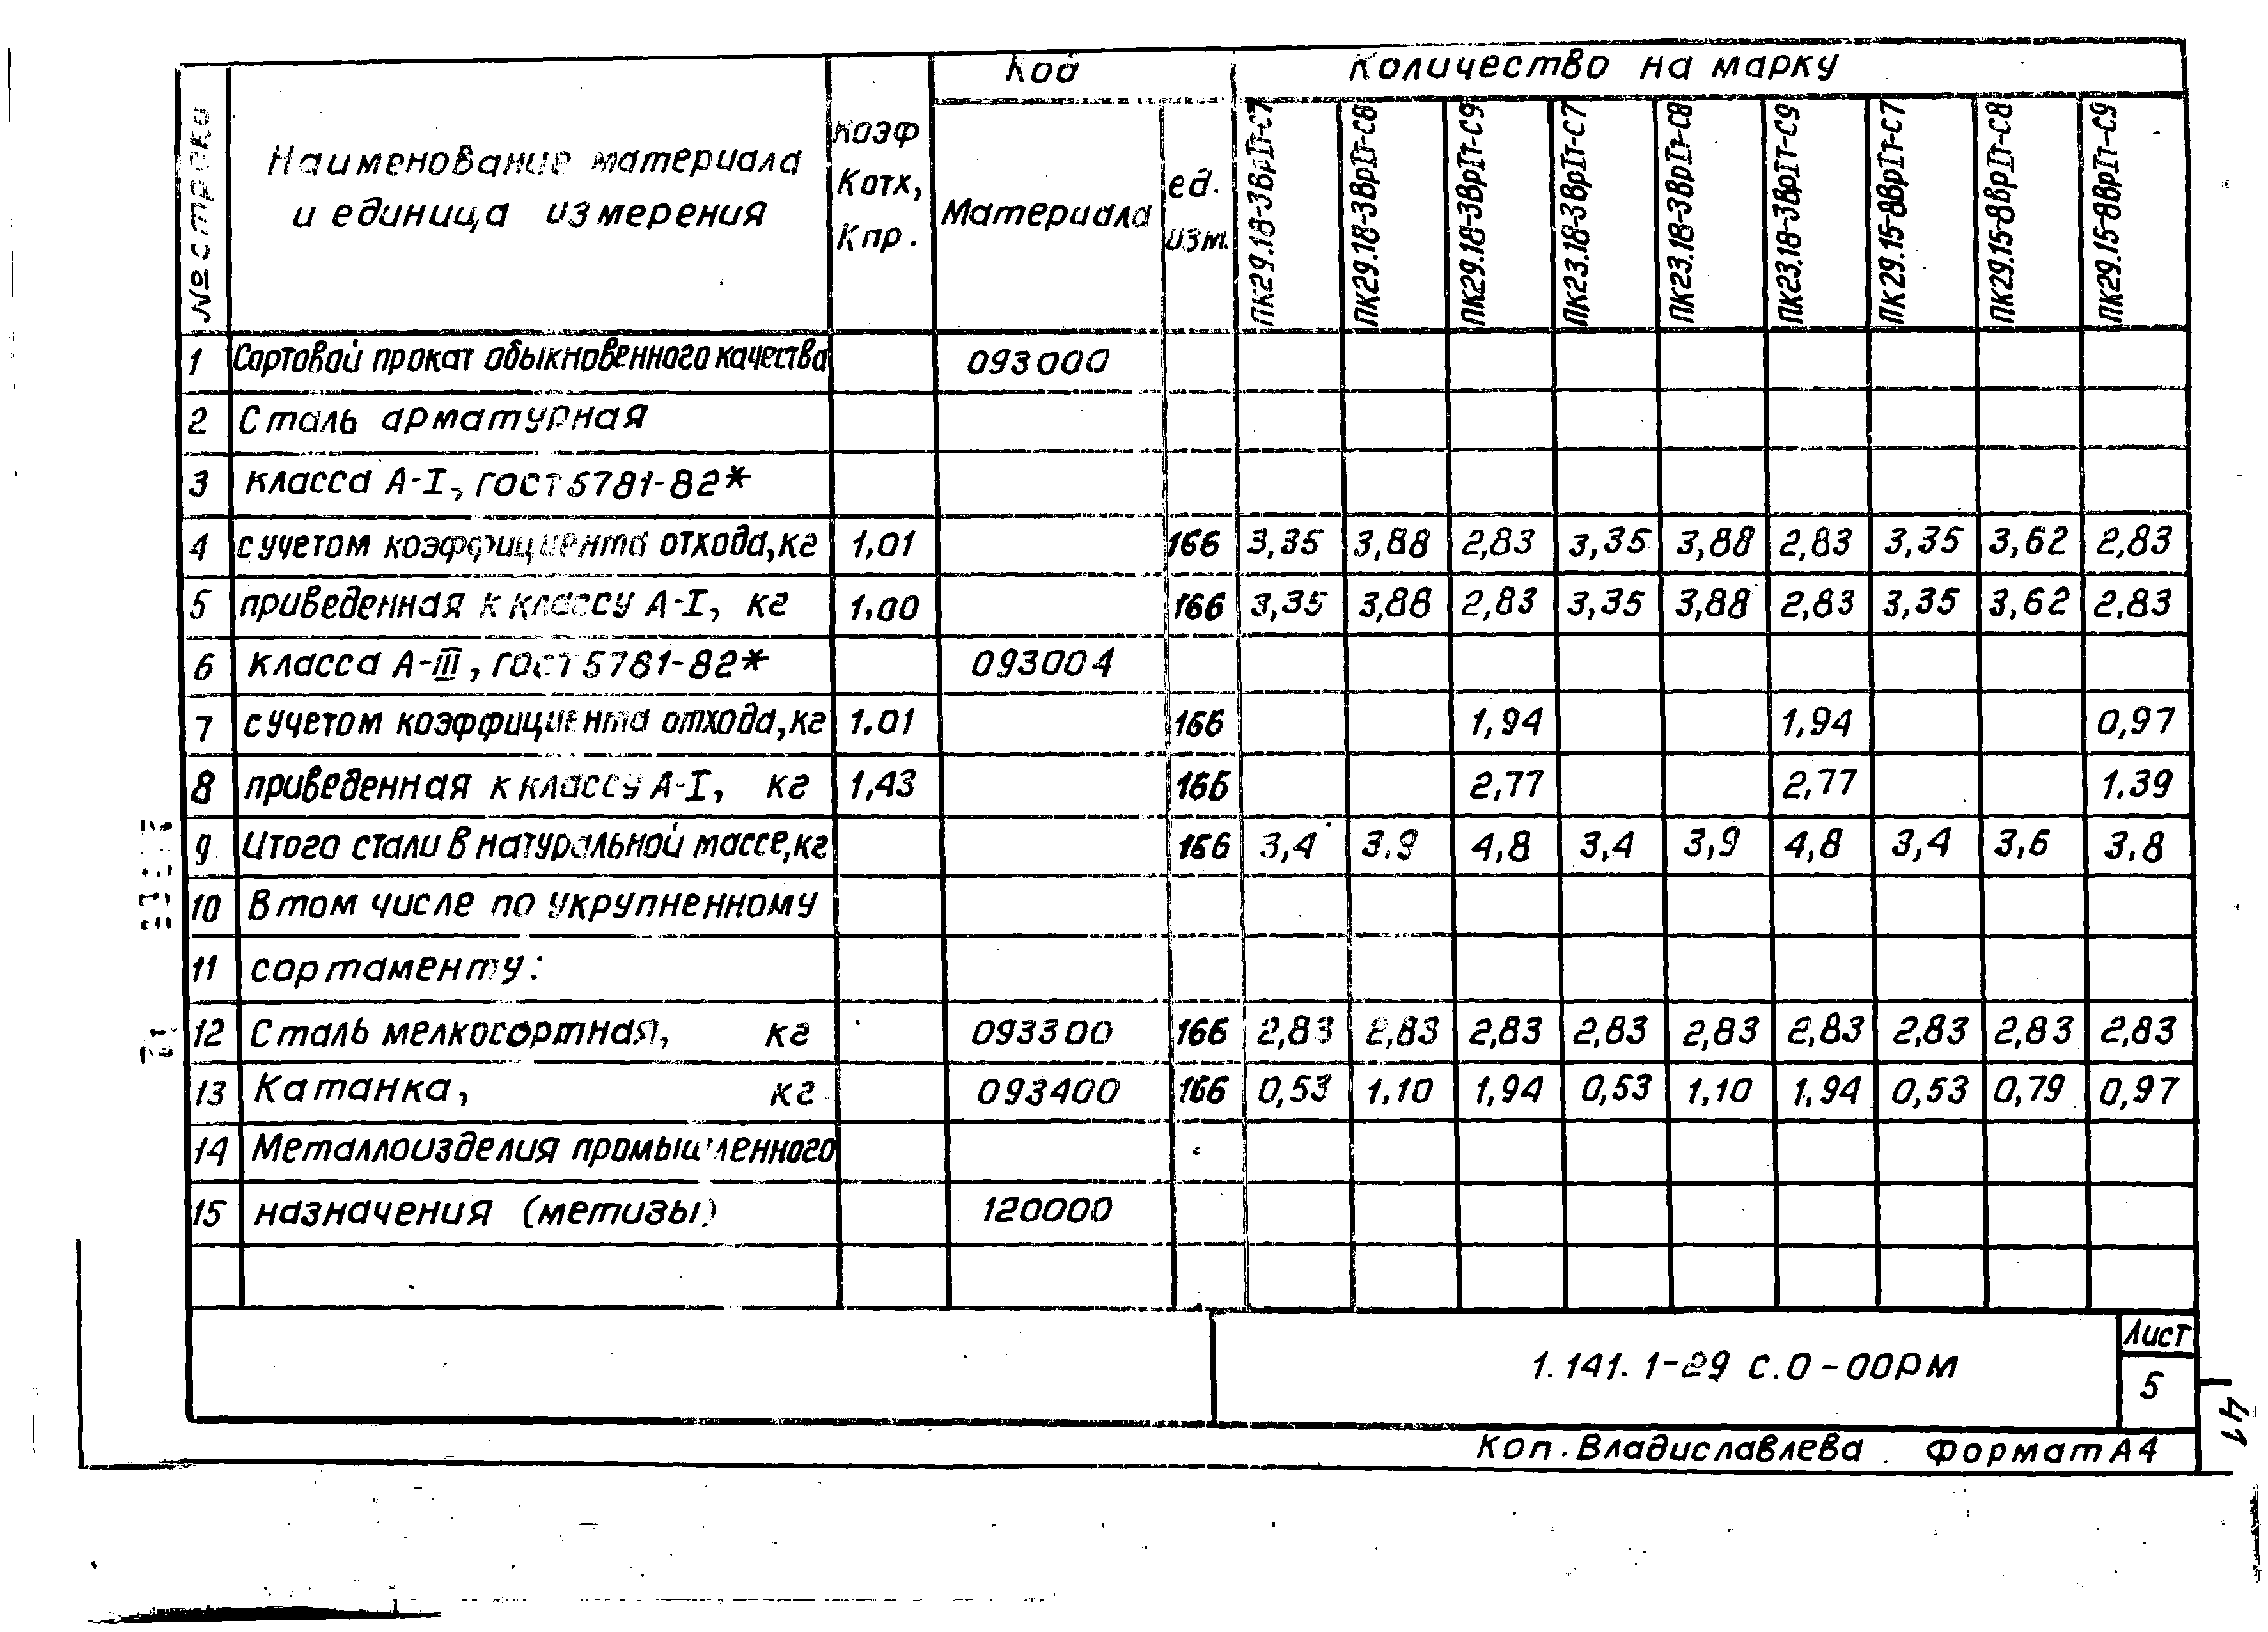 № строки
Наименование материала
и единица измерения
Коэф
Котх,
Кпр.
Код
Материала
ед.
изм.
Количество на марку
ПК29.18-3ВрIт-С7
ПК29.18-3ВрIт-С8
ПК29.18-3ВрIт-С9
ПК23.18-3ВрIт-С7
ПК23.18-3ВрIт-С8
ПК23.18-3ВрIт-С9
ПК29.15-8ВрIт-С7
ПК29.15-8ВрIт-С8
ПК29.15-8ВрIт-С9
1 Сортовой прокат обыкновенного качества 093000
2 Сталь арматурная
3 класса А-I, ГОСТ 5781-82*
4 с учетом коэффициента отхода, кг 1,01 166 3,35 3,88 2,83 3,35 3,88 2,83 3,35 3,62 2,83
5 приведенная к классу А-I, кг 1,00 166 3,35 3,88 2,83 3,35 3,88 2,83 3,35 3,62 2,83
6 класса А-III, ГОСТ 5781-82* 093004
7 с учетом коэффициента отхода, кг 1,01 166 1,94 1,94 0,97
8 приведенная к классу А-I, кг 1,43 166 2,77 2,77 1.39
9 Итого стали в натуральной массе, кг 166 3,4 3.9 4,8 3,4 3,9 4,8 3,4 3,6 3.8
10 В том числе по укрупненному
11 сортаменту:
12 Сталь мелкосортная, кг 093300 166 2,83 2,83 2,83 2,83 2,83 2,83 2,83 2,83 2,83
13 Катанка, кг 093400 166 0,53 1.10 1,94 0,53 1,10 1,94 0,53 0,79 0,97
14 Металлоизделия промышленного
15 назначения (метизы) 120000
1.141.1-29 с.0-00РМ
Лист
5
41
Коп. Владиславлева Формат А4